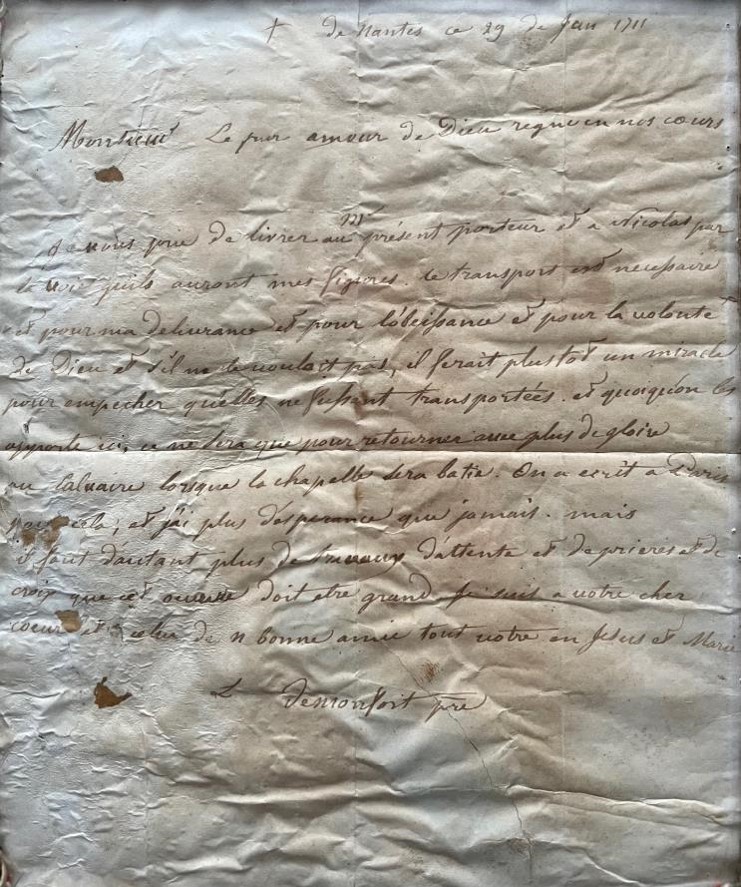 † de Nantes ce 29 de Jan 1711
Monsieur Le pur amour de Dieu regne en nos cœurs
mr
Je vous prie de livrer au présent porteur et a Nicolas par
quils auront mes figures. le transport est necessaire
et pour ma delivrance et pour l'obeissance et pour la volonté
de Dieu et s'il ne le voulait pas, il ferait plustot un miracle
pour empecher quelles ne fussent transportées. et quoiqu'on les
apporte ici, ce ne sera que pour retourner avec plus de gloire
au Calvaire lorsque la chapelle sera batie. On a ecrit a Paris
pour cela, et j'ai plus d'esperance que jamais. mais
il faut dautant plus de travaux d'attente et de prieres et de
croix que cet ouvrage doit etre grand. Je suis a votre cher
coeur et a celui de n bonne amie tout votre en Jesus et Marie
L Demonfort pre